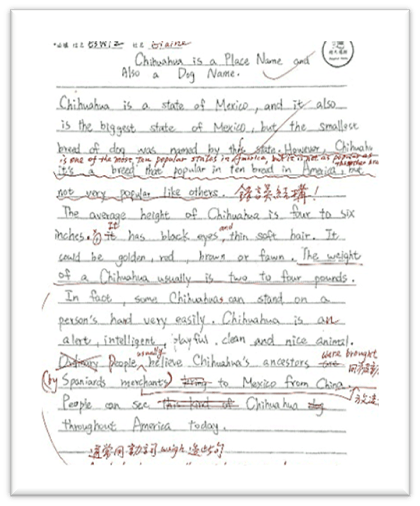 Chihuahua is a Place Name and
Also a Dog Name.
Chihuahua is a state of Mexico, and it also
is the biggest state of Mexico, but the smallest
breed of dog was named by this state. However, Chihuahu
is one of the most ten popular states in America, but it is not as popular as
it's a breed that popular in ten breed in America, but
not very popular like others. 錯誤結構!
The average height of Chihuahua is four to six
inches. It has black eyes and thin soft hair. It
could be golden, red, brown or fawn. The weight
of a Chihuahua usually is two to four pounds.
In fact, some Chihuahuas can stand on a
person's hard very easily. Chihuahua is an
alert, intelligent, playful, clean and nice animal.
usually were brought
Ordinary people believe Chihuahua's ancestors
(by Spaniards merchants) to Mexico from China.
People can see this kind of Chihuahua dog
throughout America today.
通常用動詞 weigh